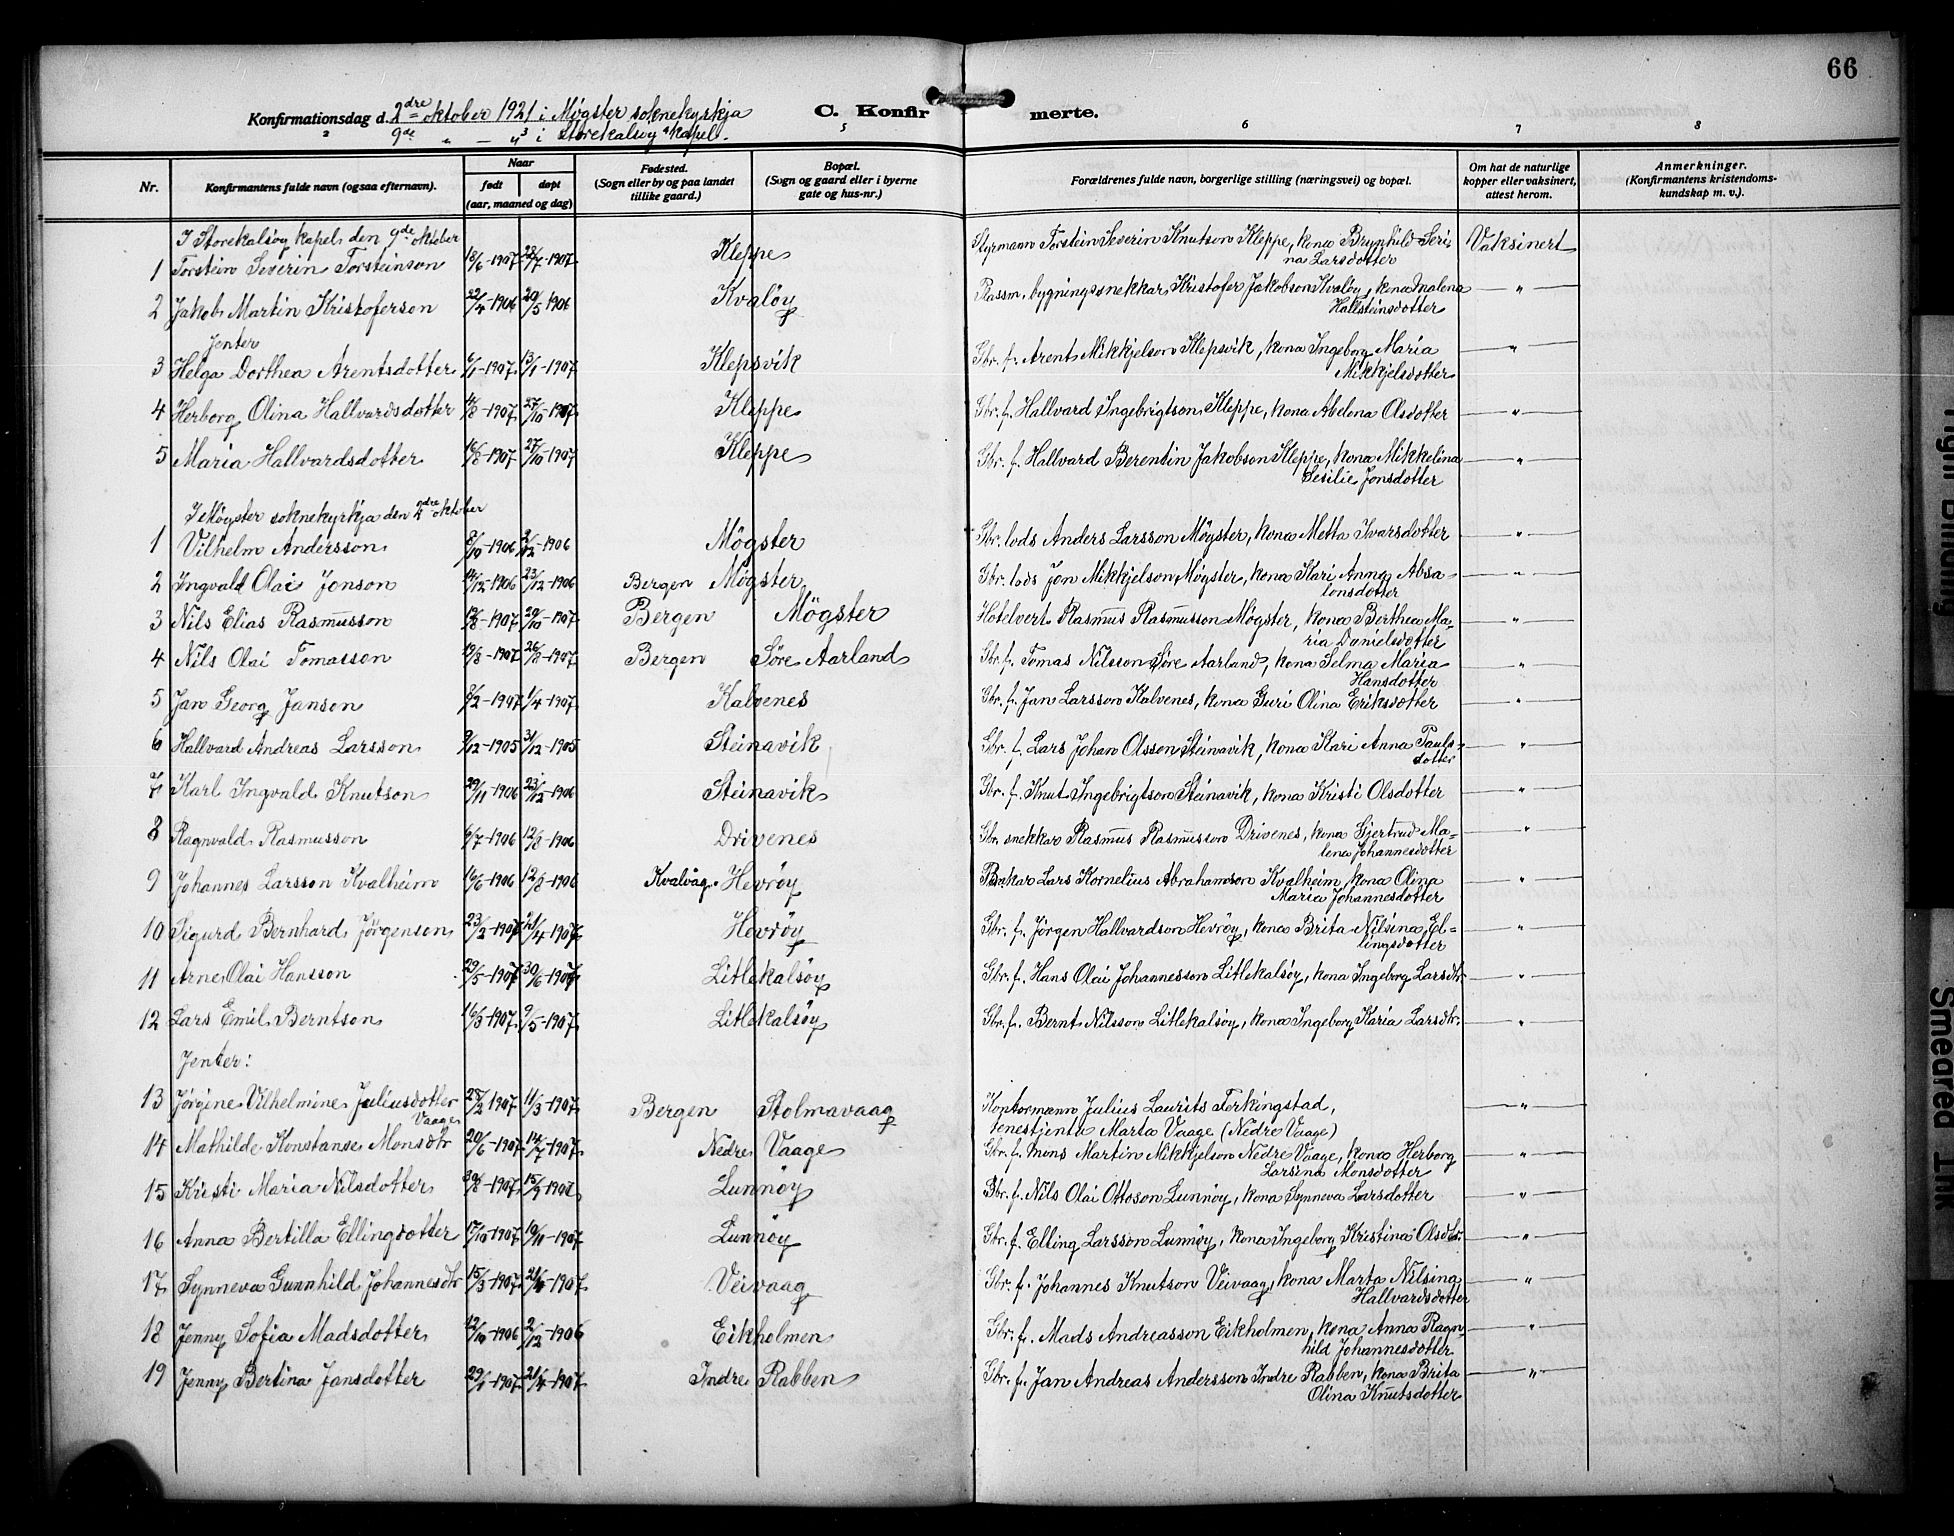 66
Konfirmationsdag d. 2dre oktober 1921 i Møgster soknekyrkja
9de " — " i Storekalsøy kapel.
C. Konfirmerte.
2 3 5 6 7 8
Nr.
Konfirmantens fulde navn (ogsaa efternavn).
Naar
født døpt
(aar, maaned og dag)
Fødested.
(Sogn eller by og paa landet
tillike gaard.)
Bopæl.
(Sogn og gaard eller i byerne
gate og hus-nr.)
Forældrenes fulde navn, borgerlige stilling (næringsvei) og bopæl.
Om hat de naturlige
kopper eller vaksinert,
attest herom.
Anmerkninger.
(Konfirmantens kristendoms-
kundskap m. v.).
I Storekalsøy kapel den 9de oktober
1 Torstein Severin Torsteinson 18/6-1907 28/7-1907 Kleppe Styrmann Torstein Severin Knutson Kleppe, kona Brynhild Seri-
na Larsdotter Vaksinert
2 Jakob Martin Kristoferson 22/4-1906 20/5 1906 Kvaløy Plassm. bygningssnekkar Kristofer Jakobson Kvaløy, kona Malena
Hallsteinsdotter — " —
Jenter
3 Helga Dorthea Arentsdotter 6/1-1907 13/1-1907 Klepsvik Gbr. f. Arent Mikkjelson Klepsvik, kona Ingeborg Maria
Mikkjelsdotter — " —
4 Herborg Olina Hallvardsdotter 4/8-1907 27/10-1907 Kleppe Gbr. f. Hallvard Ingebrigtson Kleppe, kona Abelena Olsdotter — " —
5 Maria Hallvardsdotter 16/8-1907 27/10-1907 Kleppe Gbr. f. Hallvard Berentin Jakobson Kleppe, kona Mikkelina
Sesilie Jonsdotter — " —
I Møgster soknekyrkja den 2dre oktober
1 Vilhelm Andersson 8/10-1906 2/12-1906 Møgster Gbr. lods Anders Larsson Møgster, kona Metta Ivarsdotter — " —
2 Ingvald Olai Jonson 14/12-1906 23/12-1906 Bergen Møgster Gbr. lods Jon Mikkjelson Møgster, kona Kari Anna Absa-
lonsdotter — " —
3 Nils Elias Rasmusson 12/8-1907 20/10-1907 Bergen Møgster Hotelvert Rasmus Rasmusson Møgster, kona Berthea Ma-
ria Danielsdotter — " —
4 Nils Olai Tomasson 19/8-1907 26/8-1907 Bergen Søre Aarland Gbr. f. Tomas Nilsson Søre Aarland, kona Selma Maria
Hansdotter — " —
5 Jan Georg Janson 2/2-1907 1/4-1907 Kalvenes Gbr. f. Jan Larsson Kalvenes, kona Guri Olina Eriksdotter — " —
6 Hallvard Andreas Larsson 9/12-1905 31/12-1905 Steinavik Gbr. f. Lars Johan Olsson Steinavik, kona Kari Anna Pauls-
dotter — " —
7 Karl Ingvald Knutson 29/11-1906 23/12-1906 Steinavik Gbr. f. Knut Ingebrigtson Steinavik, kona Kristi Olsdotter — " —
8 Ragnvald Rasmusson 6/7-1906 12/8-1906 Drivenes Gbr. snekkar Rasmus Rasmusson Drivenes, kona Gjertrud Ma-
lena Johannesdotter — " —
9 Johannes Larsson Kvalheim 16/6-1906 12/8-1906 Kvalvåg. Hevrøy Bakar Lars Kornelius Abrahamson Kvalheim, kona Olina
Maria Johannesdotter — " —
10 Sigurd Bernhard Jørgenson 23/2-1907 21/4-1907 Hevrøy Gbr. f. Jørgen Hallvardson Hevrøy, kona Brita Nilsina El-
lingsdotter — " —
11 Arne Olai Hansson 29/5-1907 30/6-1907 Litlekalsøy Gbr. f. Hans Olai Johannesson Litlekalsøy, kona Ingeborg Larsdtr — " —
12 Lars Emil Berntson 16/3-1907 9/5-1907 Litlekalsøy Gbr. f. Bernt Nilsson Litlekalsøy, kona Ingeborg Karia Larsdtr. — " —
Jenter:
13 Jørgine Vilhelmine Juliusdotter
Vaage 25/2 1907 11/3-1907 Bergen Stolmavaag Kontormann Julius Laurits Ferkingstad,
tenestjenta Marta Vaage (Nedre Vaage) — " —
14 Mathilde Konstanse Monsdtr 20/6-1907 14/7-1907 Nedre Vaage Gbr. f. Mons Martin Mikkjelson Nedre Vaage, kona Herborg
Larsina Monsdotter — " —
15 Kristi Maria Nilsdotter 30/8-1907 15/9-1907 Lunnøy Gbr. f. Nils Olai Ottoson Lunnøy, kona Synneva Larsdotter — " —
16 Anna Bertilla Ellingsdotter 17/10-1907 10/11-1907 Lunnøy Gbr. f. Elling Larsson Lunnøy, kona Ingeborg Kristina Olsdtr. — " —
17 Synneva Gunnhild Johannesdtr 15/3-1907 21/4-1907 Veivaag Gbr. f. Johannes Knutson Veivaag, kona Marta Nilsina
Hallvardsdotter — " —
18 Jenny Sofia Madsdotter 12/10-1906 2/12-1906 Eikholmen Gbr. f. Mads Andreasson Eikholmen, kona Anna Ragn-
hild Johannesdotter — " —
19 Jenny Bertina Jansdotter 29/1-1907 21/4-1907 Indre Rabben Gbr. f. Jan Andreas Andersson Indre Rabben, kona Brita
Olina Knutsdotter — " —
Tight Binding
Smeared Ink